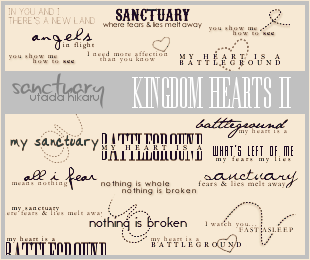 IN YOU AND I
THERE'S A NEW LAND
SANCTUARY
where fears & lies melt away
you show me
how to see
angels
in flight
you show me
how to see
I need more affection
than you know
MY HEART IS A
BATTLEGROUND
sanctuary
utada hikaru
KINGDOM HEARTS II
my sanctuary
MY HEART IS A
BATTLEGROUND
battleground
my heart is a
WHAT'S LEFT OF ME
my fears my lies
all i fear
means nothing
nothing is whole
nothing is broken
sanctuary
fears & lies melt away
my sanctuary
ere fears & lies melt away
nothing is broken
I watch you
FAST ASLEEP
my heart is a
BATTLEGROUND
my heart is a
BATTLEGROUND